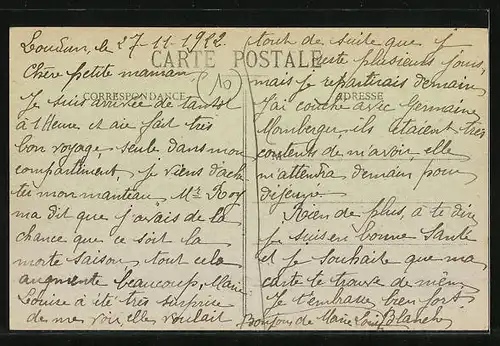 Loudun, le 27-11-1922
CARTE POSTALE
CORRESPONDANCE
ADRESSE
Chère petite maman
Je suis arrivée de tantot
à l'Heure et aie fait très
bon voyage seule dans mon
compartiment, je viens d'ache
ter mon manteau, Mr Roy
ma dit que j'avais de la
chance que ce soit la
morte saison, tout cela
augmente beaucoup, Marie
Louise à été très surprise
de me voir, elle voulait
tout de suite que je
reste plusieurs jours,
mais je repartirais demain
J'ai couché avec Germaine
ils étaient très
contents de m'avoir, elle
m'attendra demain pour
déjeuner
Rien de plus, à te dire
je suis en bonne Santé
et je souhaite que ma
carte te trouve de même
Je t'embrasse bien fort
Bonjour de Marie Louise Blanche